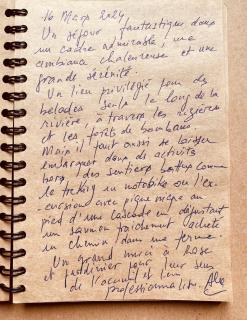 16 Mars 2024
Un séjour fantastique dans
un cadre admirable, une
ambiance chaleureuse et une
grande sérénité.
Un lieu privilégié pour des
balades le long de la
rivière, à travers les rizières
et les forêts de bambous.
Mais il faut aussi se laisser
embarquer dans des activités
hors des sentiers battus comme
le treking en motobike ou l'ex-
-cursion avec pique nique au
pied d'une cascade en dégustant
un saumon fraichement acheté
en chemin dans une ferme.
Un grand merci à Rose
et pour leur sens
de l'accueil et leur
professionnalisme